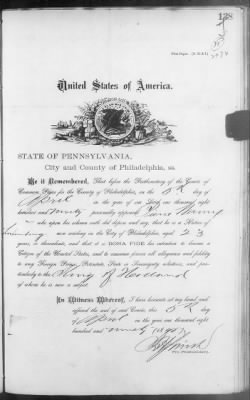 138
United States of America.
STATE OF PENNSYLVANIA,
City and County of Philadelphia, ss.
Be it Remembered, That before the Prothonotary of the Courts of
Common Pleas for the County of Philadelphia, on the 8th day of
April in the year of our Lord one thousand eight
hundred and ninety personally appeared
who upon his solemn oath did depose and say, that he is a Native of
now residing in the City of Philadelphia, aged 23
years, or thereabouts, and that it is BONA FIDE his intention to become a
Citizen of the United States, and to renounce forever all allegiance and fidelity
to any Foreign Prince, Potentate, State or Sovereignty whatever, and par-
ticularly to the King of Holland
of whom he is now a subject.
In Witness Whereof, I have hereunto set my hand and
affixed the seal of said Courts, this 8th
day of April in the year one thousand eight
hundred and ninety
Pro Prothonotary.